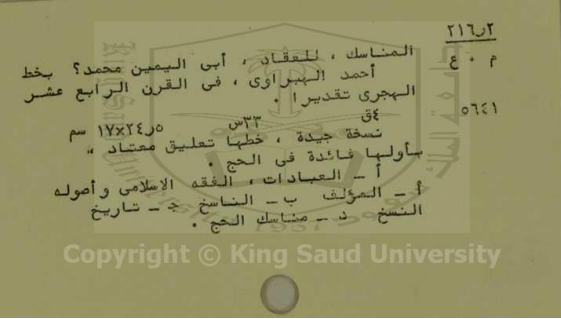 ٢ر٢١٦
م ٠ ع
المناسك ، للعقاد ، أبى اليمين محمد؟ بخط
أحمد الهبراوى ، فى القرن الرابع عشر
الهجرى تقديرا ٠
٥٦٤١
٤ق ٣٣س ٥ر٢٤×١٧ سم
نسخة جيدة ، خطها تعليق معتاد ،
بأولها فائدة فى الحج ٠
أ ـ العبادات ، الفقه الاسلامى وأصوله
أ ـ المؤلف ب ـ الناسخ جـ ـ تاريخ
النسخ د ـ مناسك الحج ٠
Copyright © King Saud University
1957